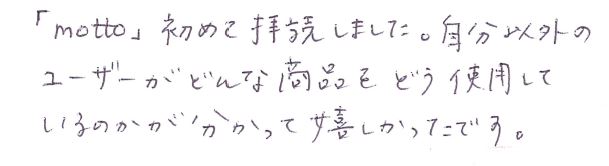 「motto」初めて拝読しました。自分以外の
ユーザーがどんな商品をどう使用して
いるのかが分かって嬉しかったです。